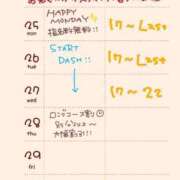 25
mon
HAPPY
MONDAY
指名料無料!!
17 ~ Last
26
tue
START
DASH!!
17 ~ Last
27
wed
17 ~ 22
28
thu
ロングコース割り
29
fri